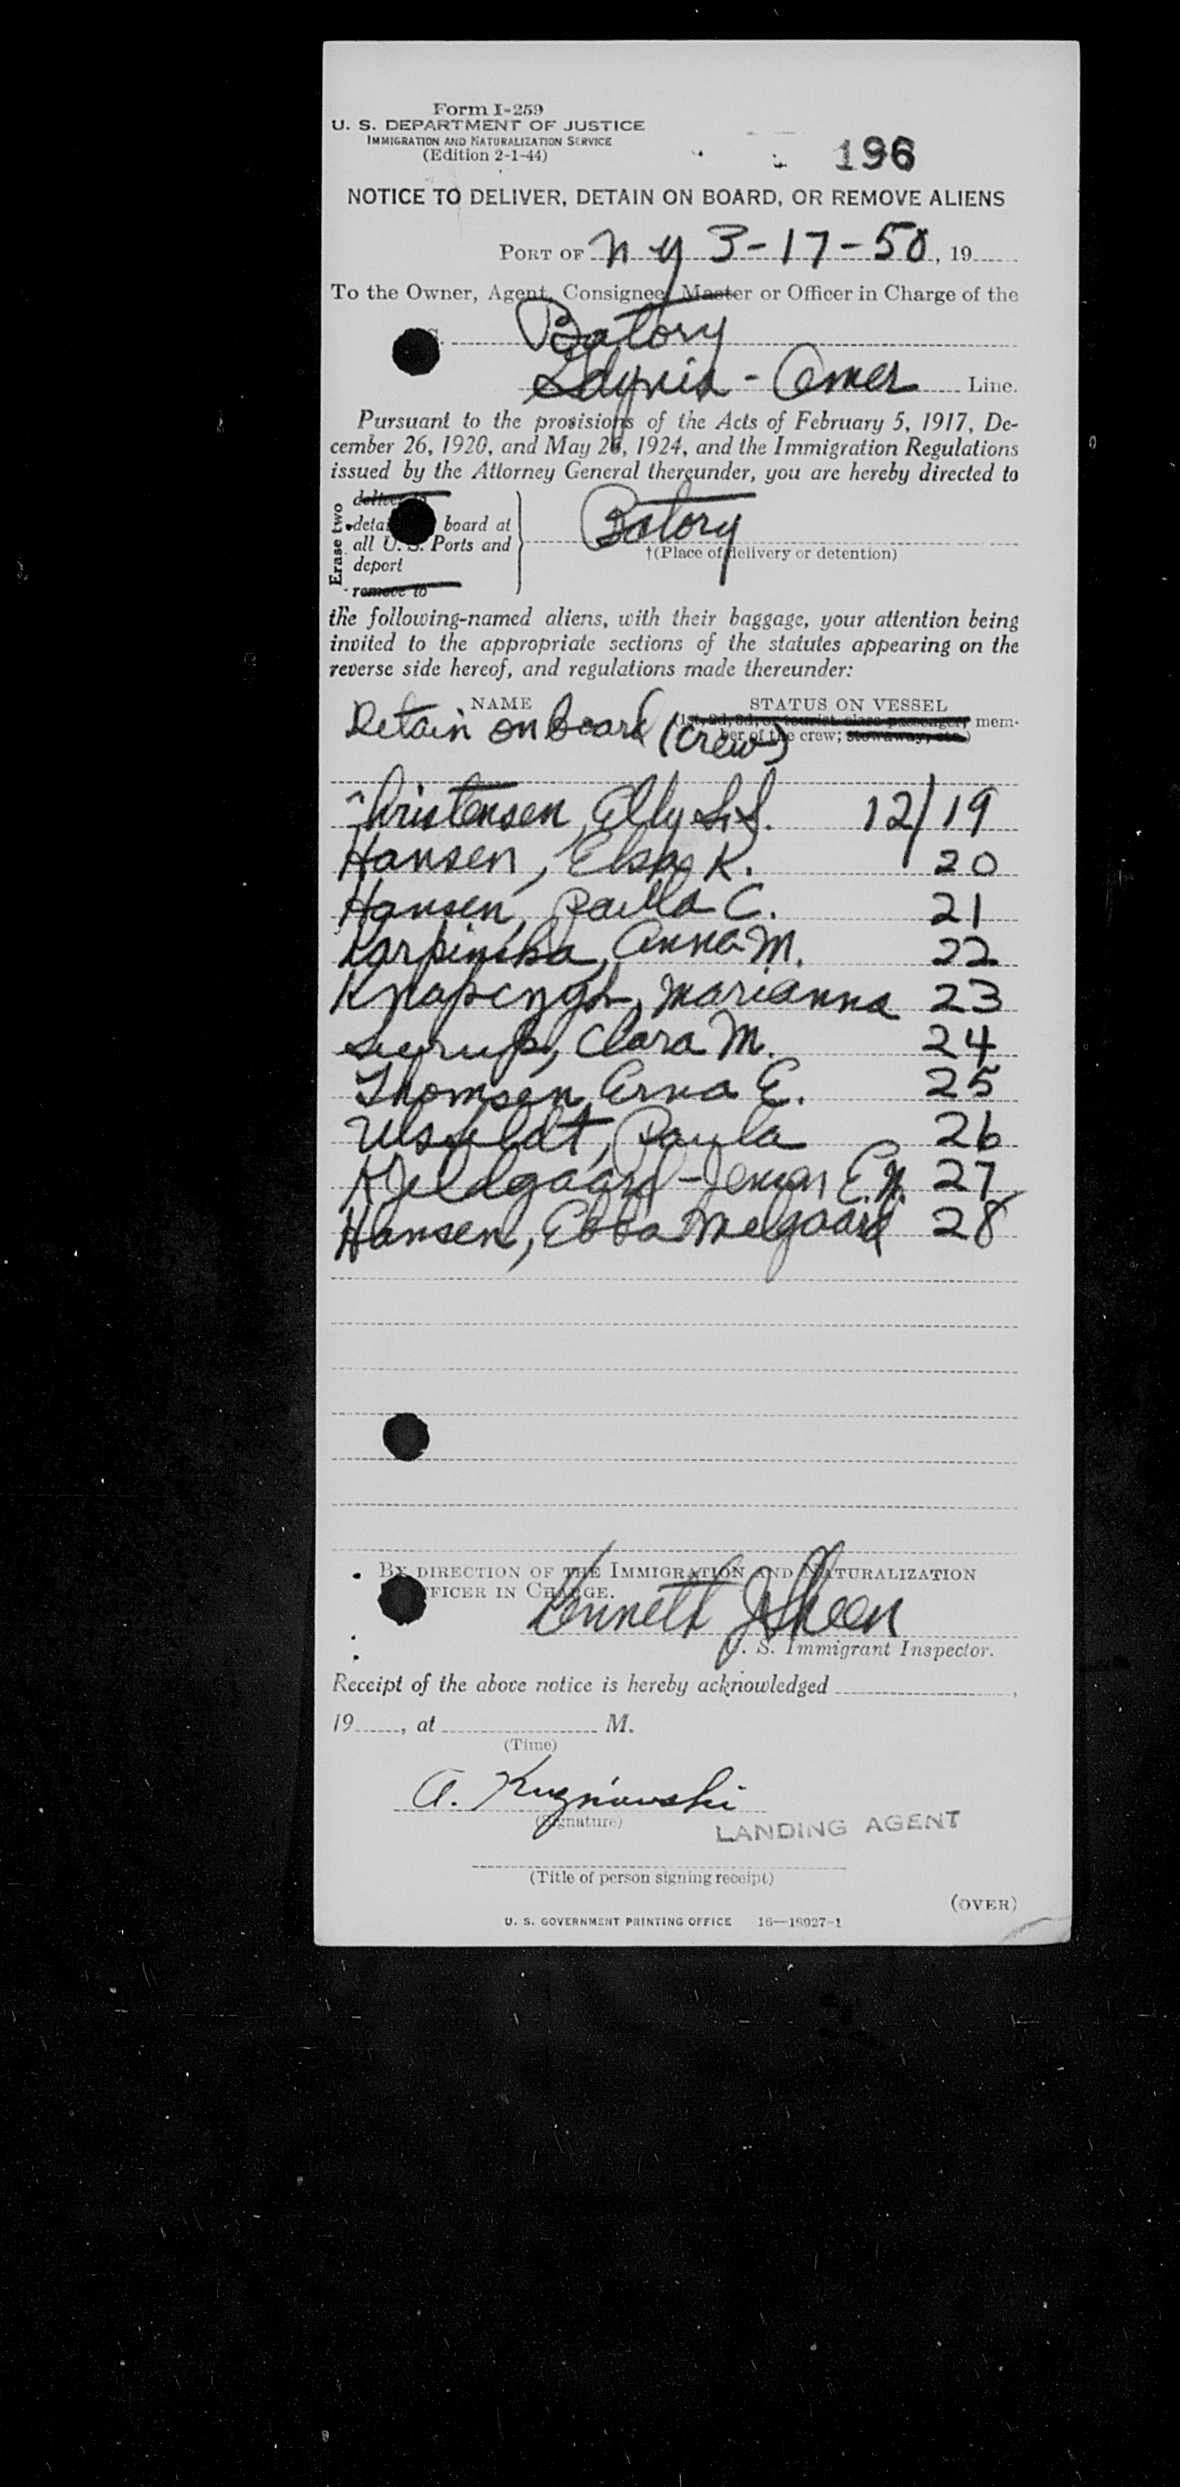 Form I-259
U. S. DEPARTMENT OF JUSTICE
IMMIGRATION AND NATURALIZATION SERVICE
(Edition 2-1-44)
196
NOTICE TO DELIVER, DETAIN ON BOARD, OR REMOVE ALIENS
PORT OF N Y 3-17-50, 19
To the Owner, Agent, Consignee, Master or Officer in Charge of the
Batory
Gdynia - Amer Line.
Pursuant to the provisions of the Acts of February 5, 1917, De-
cember 26, 1920, and May 26, 1924, and the Immigration Regulations
issued by the Attorney General thereunder, you are hereby directed to
Erase two
deliver to
board at
all U. S. Ports and
deport
remove to
Batory
†(Place of delivery or detention)
the following-named aliens, with their baggage, your attention being
invited to the appropriate sections of the statutes appearing on the
reverse side hereof, and regulations made thereunder:
NAME STATUS ON VESSEL
(1st, 2d, 3d, or tourist class passenger, mem-
ber of the crew; stowaway, etc.)
Detain on board (Crew)
Christensen, Elly S. 12/19
Hansen, K. 20
Hansen, Paula C. 21
Karpinska, Anna M. 22
Marianna 23
Clara M. 24
Thomsen, Erna E. 25
Paula 26
Kjeldgaard-Jensen E.N. 27
Hansen, Ebba Melgaard 28
BY DIRECTION OF THE IMMIGRATION AND NATURALIZATION
OFFICER IN CHARGE.
Kenneth J Sheen
U. S. Immigrant Inspector.
Receipt of the above notice is hereby acknowledged ,
19 , at M.
(Time)
A.
(Signature)
LANDING AGENT
(Title of person signing receipt)
(OVER)
U. S. GOVERNMENT PRINTING OFFICE 16—18027-1